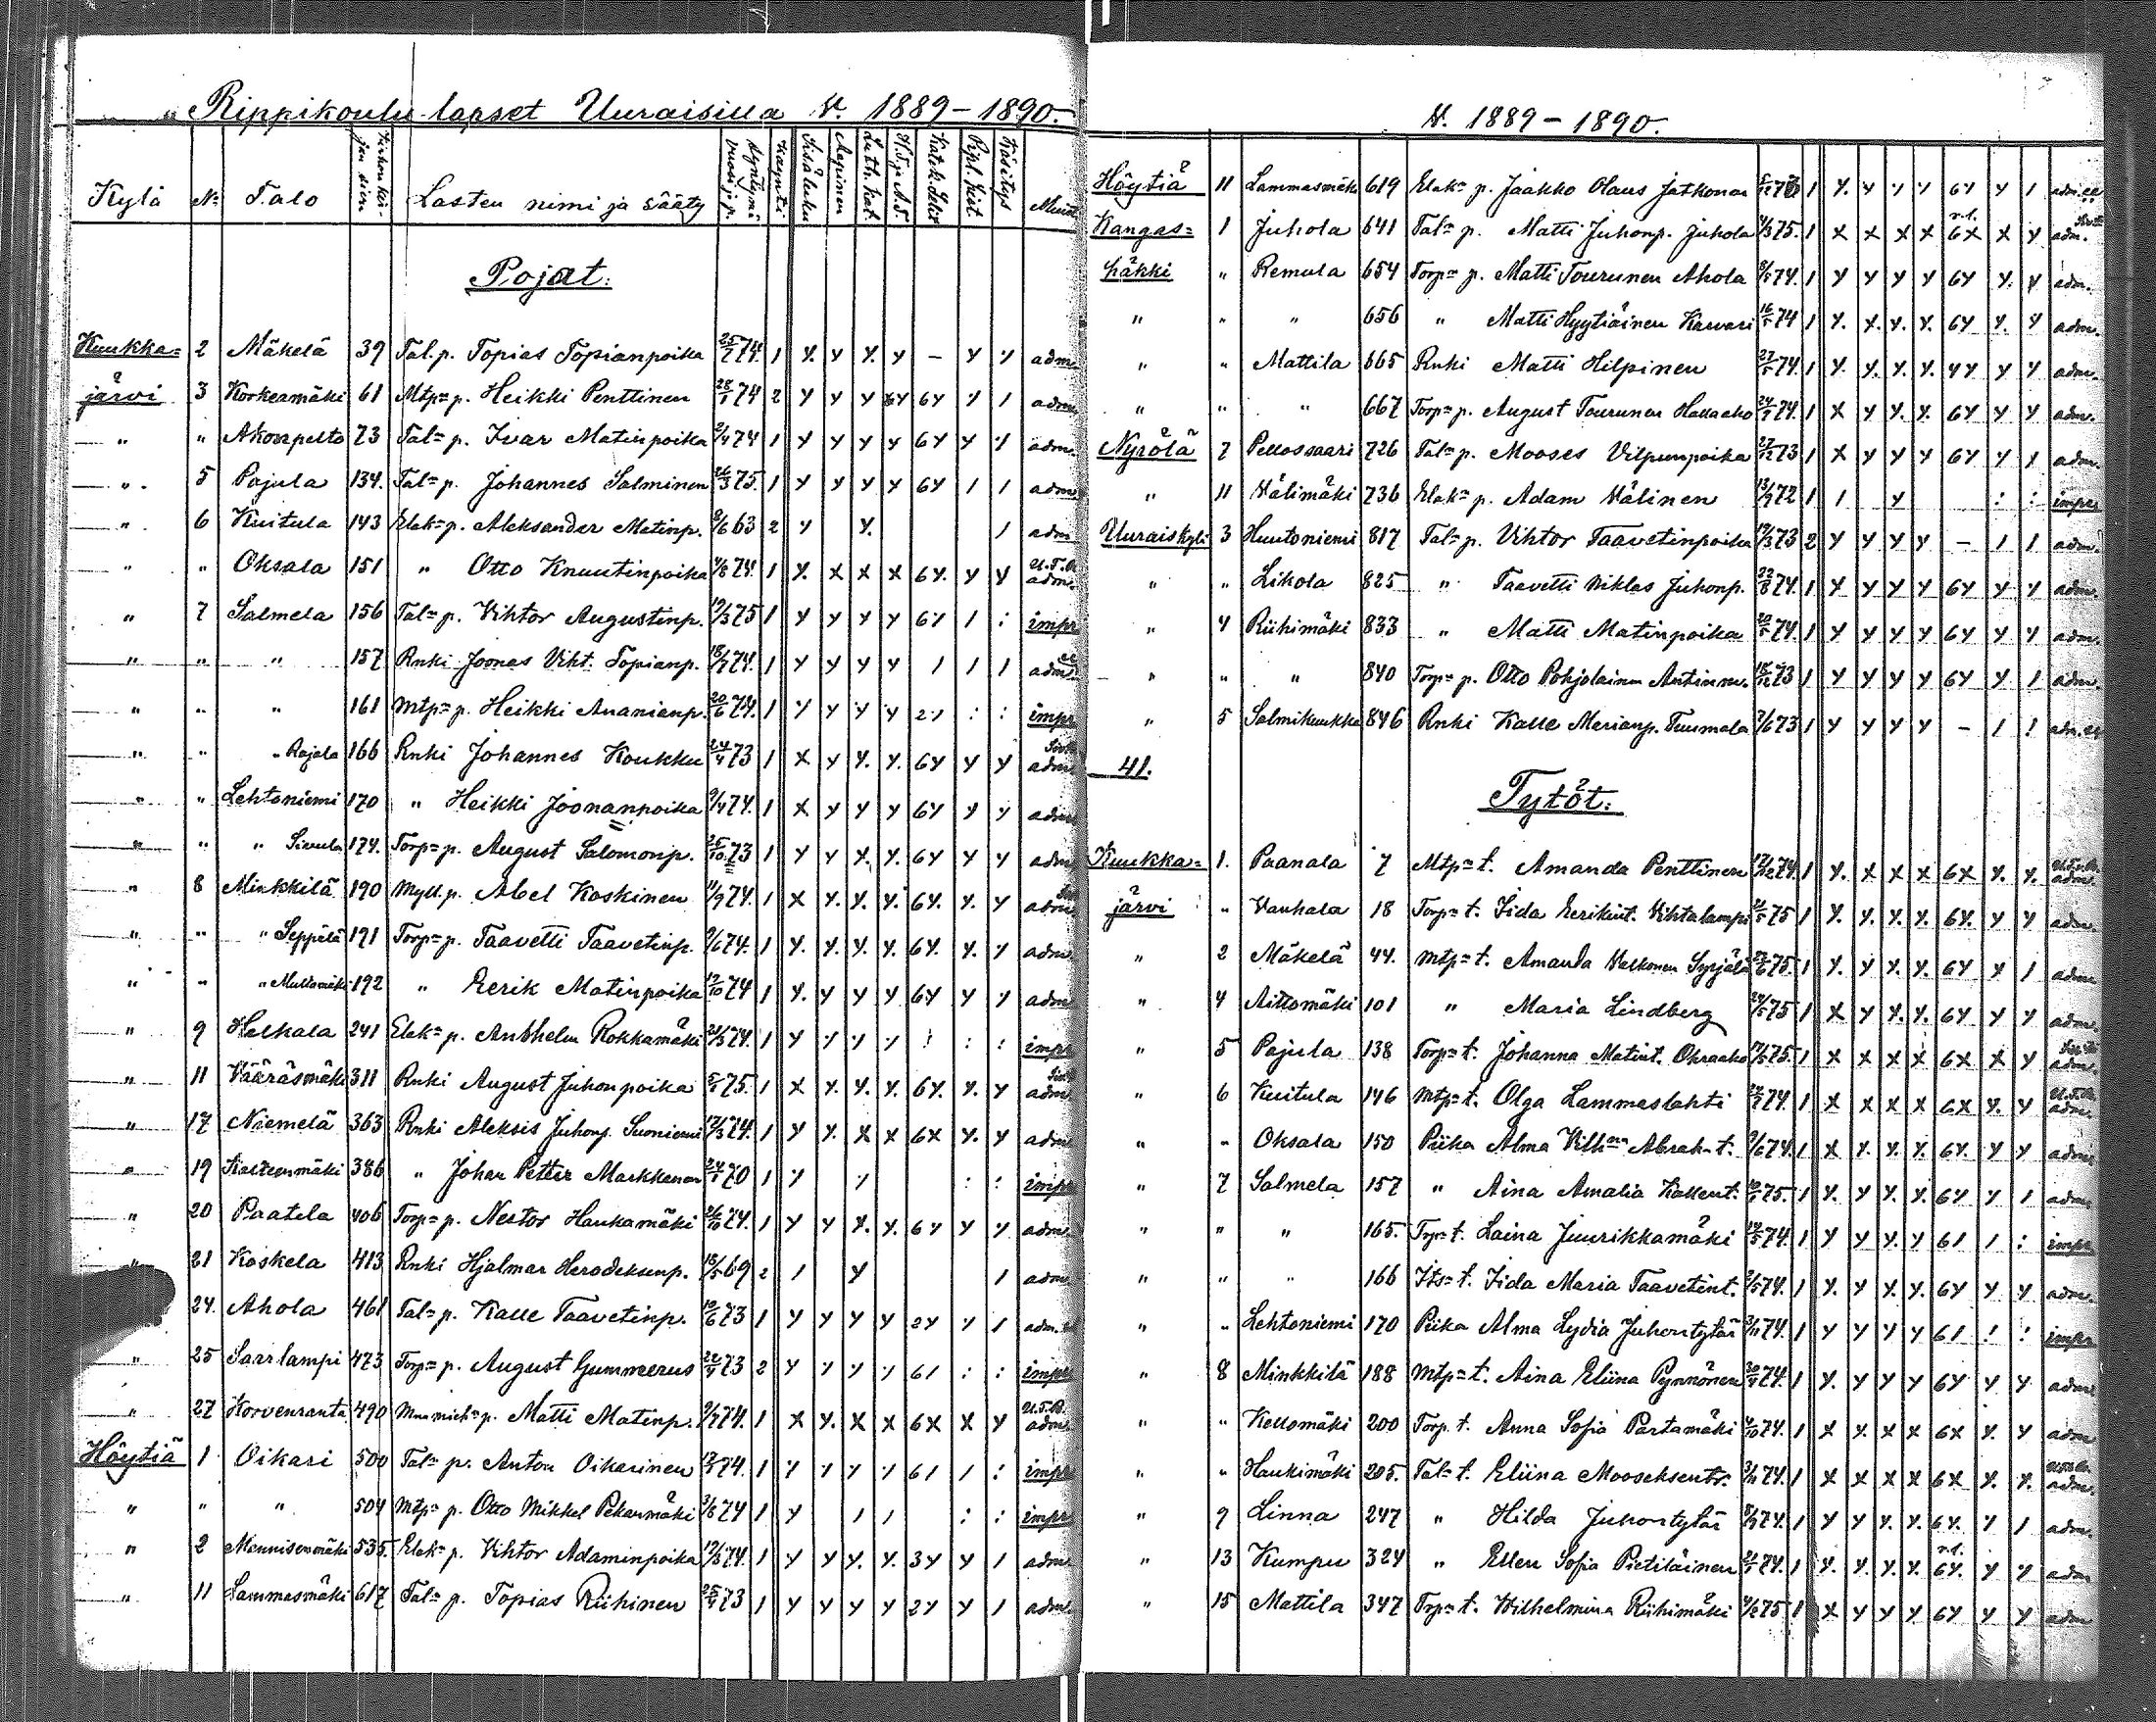 Rippikoulu lapset Uuraisilla v. 1889-1890.
Kylä N:o Talo Lasten nimi ja sääty Käynti Sisäluku Katek. Selit. Bipl. hist. Käsitys Muist.
Pojat:
Kuukka= 2 Mäkelä 39 Tal. p. Topias Topianpoika 25/7 74. 1 y. y y. y - y y adm.
järvi 3 Korkeamäki 61 Mtp=p. Heikki Penttinen 28/1 74 2 y y y 6y 6y y 1 adm.
" " Ahonpelto 73 Tal=p. Ivar Matinpoika 2/4 74 1 y y y y 6y y y adm.
" 5 Pajula 134. Tal=p. Johannes Salminen 26/3 75. 1 y y y y 6y 1 1 adm
" 6 Kuitula 143 Elak=p. Aleksander Matinp. 8/6 63 2 y y. 1 adm
" " Oksala 151 " Otto Knuutinpoika 4/8 74. 1 y. x x x 6y. y y U.T.B. adm.
" 7 Salmela 156 Tal=p. Vihtor Augustinp. 19/3 75 1 y y y y 6y 1 : impr
" " " 157 Rnki Joonas Viht. Topianp. 18/7 74. 1 y y y y 1 1 1 adm.
" " " 161 Mtp=p. Heikki Ananianp. 20/6 74. 1 y y y y 2y : : impr
" " " Rajala 166 Rnki Johannes Koukku 24/4 73 1 x y y. y. 6y y y adm
" " Lehtoniemi 170 " Heikki Joonanpoika 9/4 74. 1 x y y y 6y y y adm
" " " Sivula 174. Torp=p. August Salomonp. 25/10 73 1 y y x. y. 6y y y adm
" 8 Minkkilä 190 Myll. p. Abel Koskinen 11/9 74. 1 x y. y. y. 6y. y. y adm
" " " Seppälä 191 Torp=p. Taavetti Taavetinp. 9/6 74. 1 y. y. y. y. 6y. y. y adm
" " 192 " Eerik Matinpoika 12/10 74 1 y. y y y 6y y y adm
" 9 Halkala 241 Elak=p. Anshelm Rokkamäki 21/3 74. 1 y y y y : : : impr
" 11 Vääräsmäki 311 Rnki August Juhonpoika 5/1 75. 1 x y. y. y. 6y. y. y adm.
" 17 Niemelä 363 Rnki Aleksis Juhonp. Suoniemi 12/3 74. 1 y y. x x 6x y. y adm
" 19 386 " Johan Petter Markkanen 24/1 70 1 y y : : impr
" 20 Paatela 406 Torp=p. Nestor Haukamäki 26/10 74. 1 y y x. y. 6y y y adm.
" 21 Koskela 413 Rnki Hjalmar Herodeksenp. 18/5 69 2 1 y 1 adm
24. Ahola 461 Tal=p. Kalle Taavetinp. 10/6 73 1 y y y y 2y y 1 adm.
" 25 Saarlampi 473 Torp=p. August Gummeerus 22/4 73 2 y y y y 61 : : impr
" 27 Korvenranta 490 p. Matti Matinp. 9/7 74. 1 x y. x x 6x x y U.T.B. adm.
Höytiä 1 Oikari 500 Tal= p. Anton Oikarinen 12/7 74. 1 y y y y 61 1 : impr
" " " 504 Mtp= p. Otto Mikkel Pekanmäki 3/8 74 1 y 1 1 : : impr
" 2 Mannisenmäki 535. Elak= p. Vihtor Adaminpoika 17/3 74. 1 y y y. y. 3y y 1 adm.
" 11 Lammasmäki 617 Tal= p. Topias Riihinen 25/4 73 1 y y y y 2y y 1 adm.
v. 1889-1890.
Höytiä 11 Lammasmäki 619 Elak= p. Jaakko Olaus Jatkonen 1 y. y y y 6y y 1 adm.
Kangas= 1 Juhola 641 Tal= p. Matti Juhonp. Juhola 4/3 75. 1 x x x x 6x x y adm.
häkki " Remula 654 Torp= p. Matti Tourunen Ahola 8/5 74. 1 y y y y 6y y. y adm.
" " " 656 " Matti Hyytiäinen Karvari 16/1 74 1 y. y. y. y. 6y y. y adm.
" " Mattila 665 Rnki Matti Hilpinen 27/5 74. 1 y. y. y. y. 4y y y adm.
" " " 667 Torp= p. August Tourunen 24/1 74. 1 x y y. y. 6y y y adm.
Nyrölä 7 Pellossaari 726 Tal= p. Mooses Vilpunpoika 27/12 73 1 x y y y 6y y 1 adm.
" 11 Välimäki 736 Elak= p. Adam Välinen 13/9 72 1 1 y : : impr
Uuraiskylä 3 Huutoniemi 817 Tal= p. Vihtor Taavetinpoika 19/3 73 2 y y y y - 1 1 adm.
" " Likola 825 " Taavetti Niklas Juhonp. 22/8 74. 1 y y y y 6y y y adm.
" 4 Riihimäki 833 " Matti Matinpoika 20/5 74. 1 y y y y 6y y y adm.
" " " 840 Torp= p. Otto Pohjolainen 18/12 73 1 y y y y 6y y 1 adm.
" 5 Salmikuukka 846 Rnki Kalle Marianp. Tuumala 7/6 73 1 y y y y - 1 1 adm.
41.
Tytöt:
Kuukka= 1. Paanala 7 Mtp= t. Amanda Penttinen 17/12 74. 1 y. x x x 6x y. y. U.T.B. adm.
järvi " Vanhala 18 Torp= t. Iida Eerikint. Vihtalampi 75 1 y. y. y. y. 6y. y y adm.
" 2 Mäkelä 44. Mtp= t. Amanda Valkonen Syrjälä 75. 1 y. y y. y. 6y x 1 adm
" 4 Aittomäki 101 " Maria Lindberg 24/5 75 1 x y y. y. 6y y y adm.
" 5 Pajula 138 Torp= t. Johanna Matint. Oksaaho 75. 1 x x x x 6x x y adm.
" 6 Kuitula 146 Mtp= t. Olga Lammaslahti 74. 1 x x x x 6x y. y U.T.B. adm.
" " Oksala 150 Piika Alma Vilh:na Abrah. t. 9/6 74. 1 x y. y. y. 6y. y y adm.
" 7 Salmela 157 " Aina Amalia Kallent. 10/1 75. 1 y. y y. y. 6y y 1 adm
" " " 165. Torp= t. Laina Juurikkamäki 19/5 74. 1 y y y. y 61 1 : impr
" " " 166 Its= t. Iida Maria Taavetint. 2/5 74. 1 y. y y. y. 6y y y adm.
" " Lehtoniemi 170 Piika Alma Lydia Juhontytär 3/11 74. 1 y y y y 61 : : impr
" 8 Minkkilä 188 Mtp= t. Aina Eliina Pynnönen 30/4 74. 1 y. y y y 6y y y adm.
" " Kellomäki 200 Torp. t. Anna Sofia Partamäki 4/10 74. 1 x y. x x 6x y. y adm
" " Haukimäki 205. Tal= t. Eliina Mooseksentr. 3/11 74. 1 x x x x 6x y. y. adm.
" 9 Linna 247 " Hilda Juhontytär 8/9 74. 1 y y y. y. 6y. y 1 adm.
" 13 Kumpu 324 " Ellen Sofia Pietiläinen 21/1 74. 1 y. y. y. y. 6y. y y adm
" 15 Mattila 347 Torp= t. Wilhelmina Riihimäki 4/2 75 1 x y y y 6y y y adm